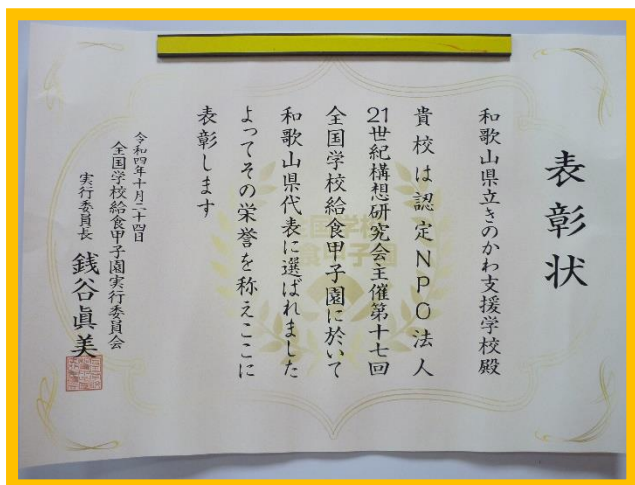 表彰状
和歌山県立きのかわ支援学校殿
貴校は認定NPO法人
21世紀構想研究会主催第十七回
全国学校給食甲子園に於いて
和歌山県代表に選ばれました
よってその栄誉を称えここに
表彰します
令和四年十月二十四日
全国学校給食甲子園実行委員会
実行委員長 銭谷眞美